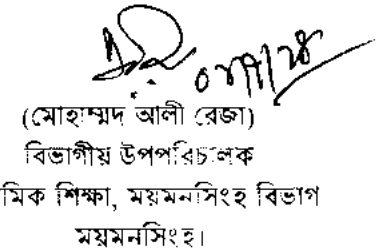 (মোহাম্মদ আলী রেজা)
বিভাগীয় উপপরিচালক
মিক শিক্ষা, ময়মনসিংহ বিভাগ
ময়মনসিংহ।